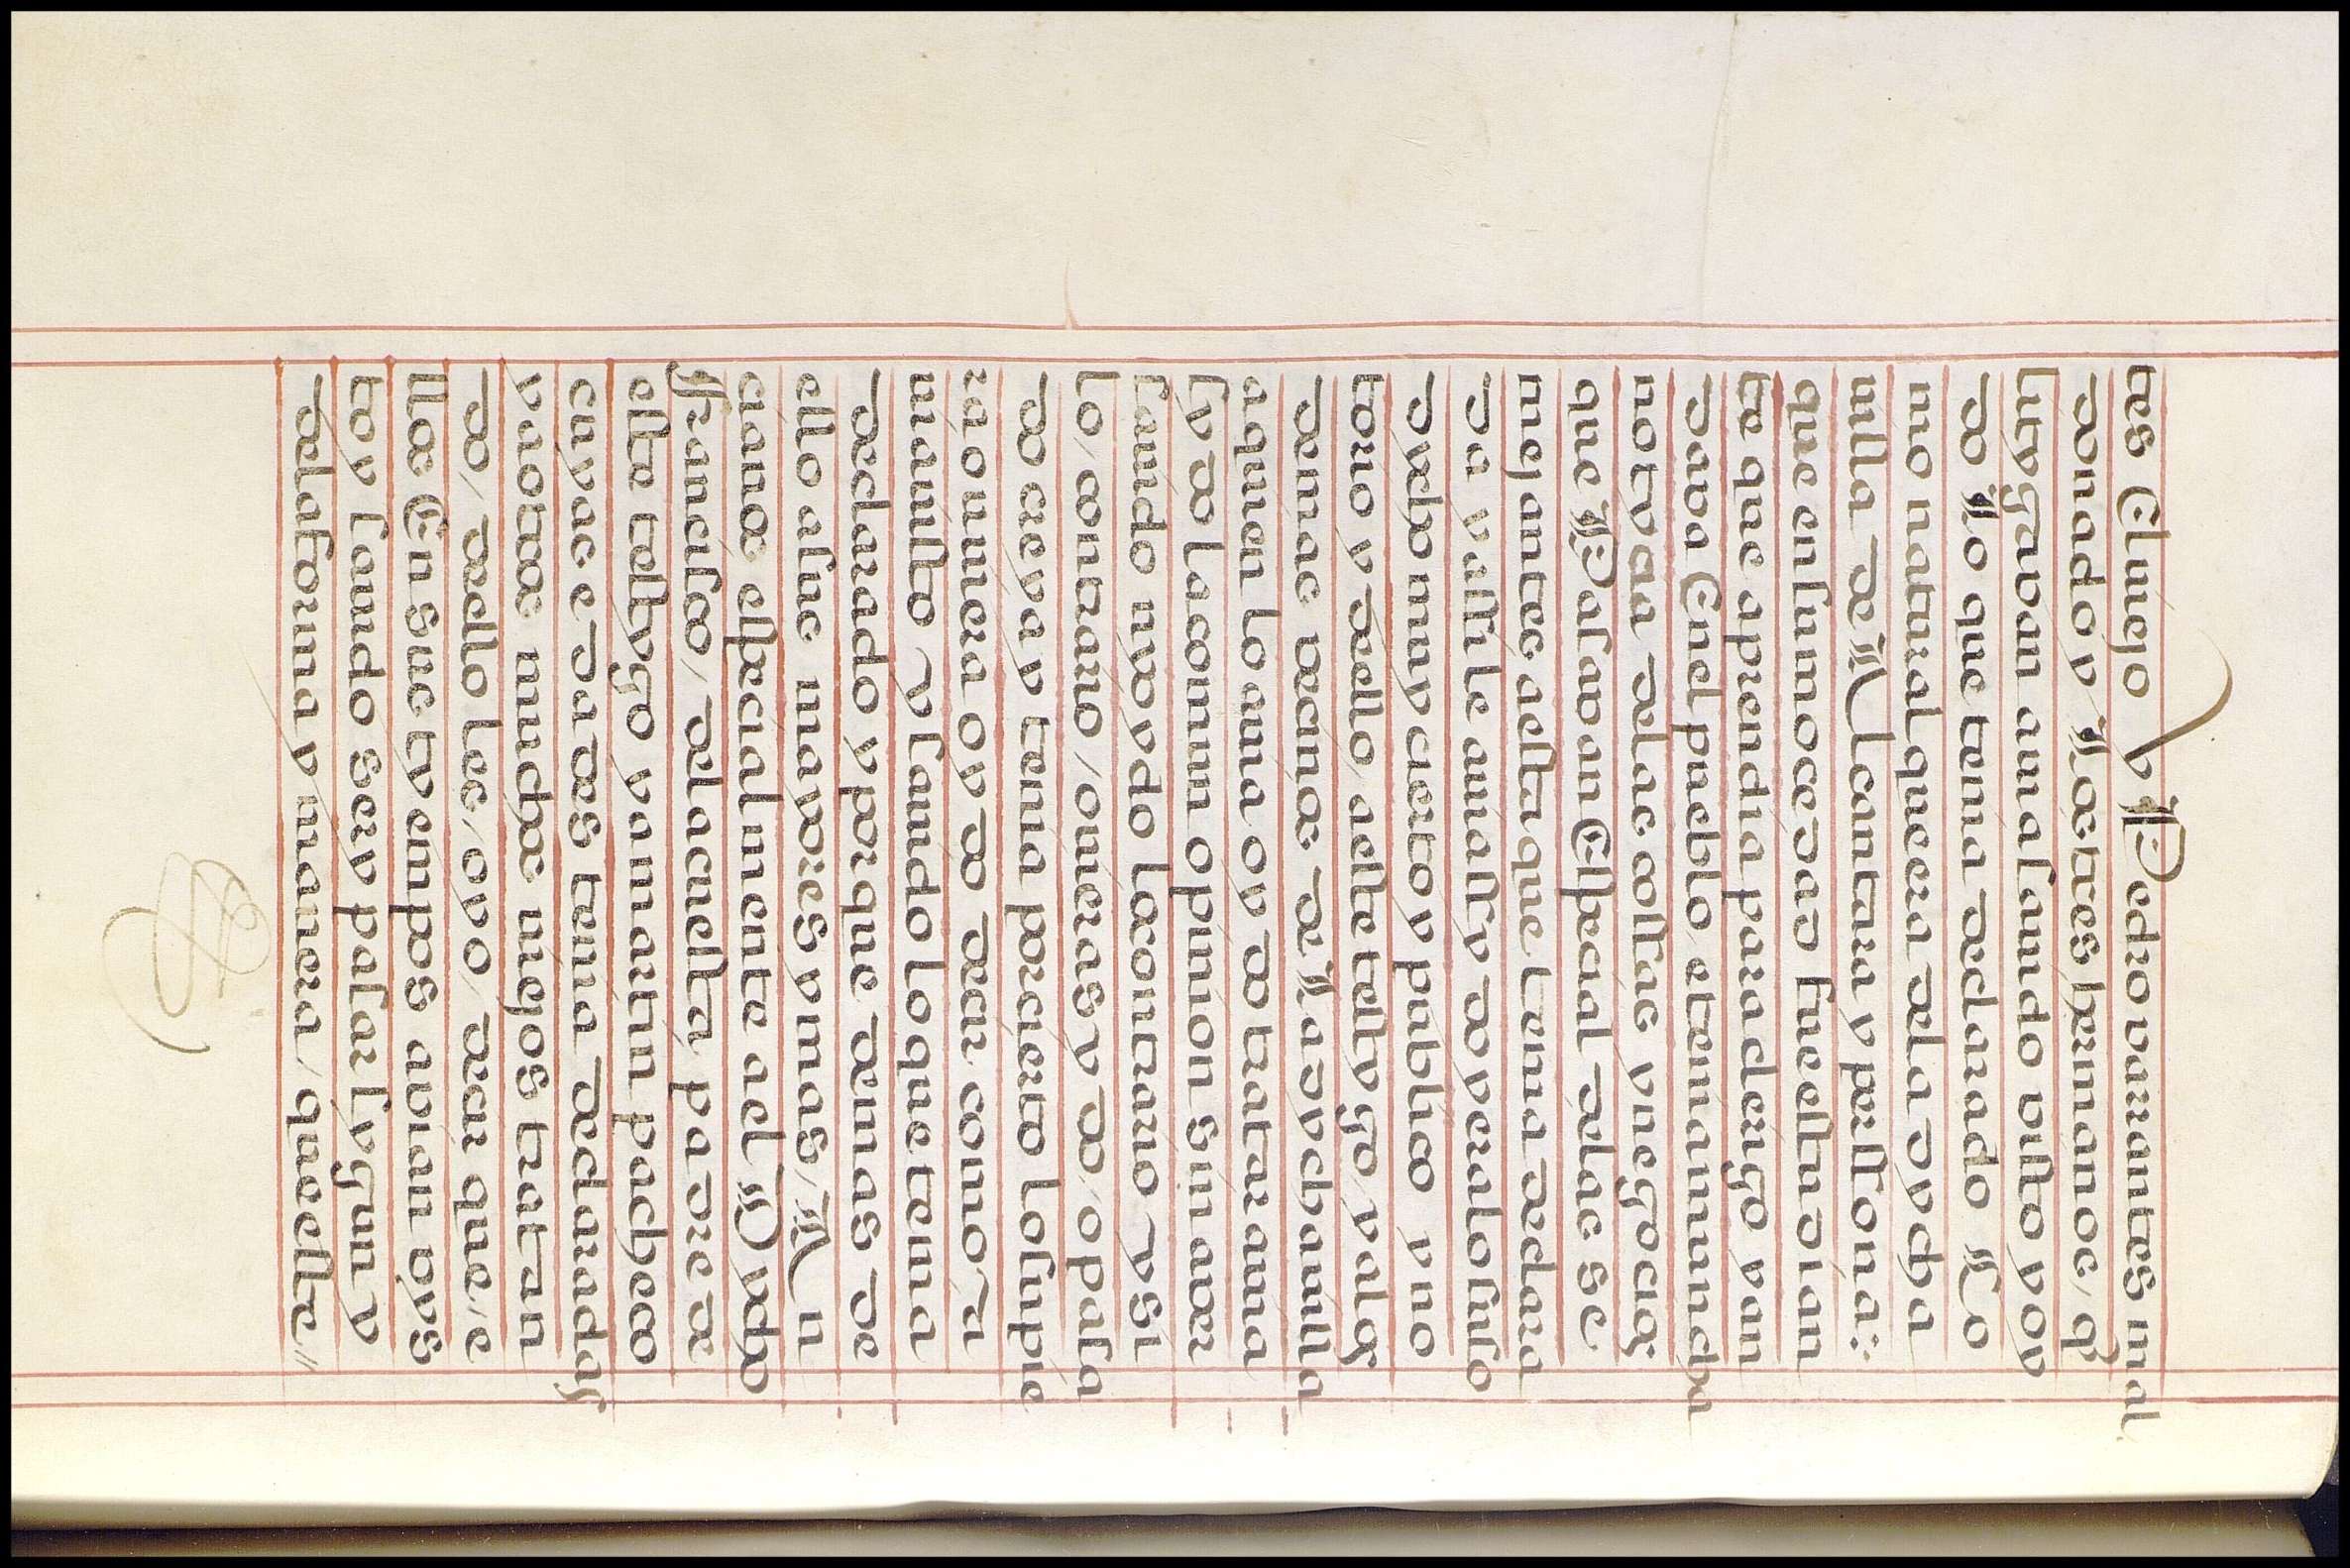 tes El uiejo y Pedro varrantes mal
donado y Lo&tes hermanos / q̃
litygavan auia sauido visto y oy
do Lo que tenia declarado Co
mo natural que era dela dycha
uilla de Alcantara y persona:
que en su moçedad fue estudian
te que aprendia para clerigo y an
dava En el pueblo e tenia mucha
notyçia delas cossas y negoçios
que Pasavan Espeçial delas se
mejantes a esta que tenia declara
da y assi le auia sydo y era lo suso
dycho muy çierto y publico y no
torio y dello / a este testygo / y a los
demas veçinos de La dycha uilla
a quien lo auia oydo tratar auia
sydo la comun opinion sin auer
sauido ny oydo lo contrario y si
lo / contrario / o mas y do / o pasa
do creya y tenia por cierto lo supie
ra o uuiera oydo deçir como a
uia uisto y sauido lo que tenia
declarado y porque demas de
ello a sus mayores y mas / An
cianos espeçialmente a el Dycho
Françisco / dela cuesta padre de
este testygo y a martin pacheco
cuyas edades tenia declaradas
y a otros muchos uiejos tratan
do / dello les / oyo / deçir que / e
llos En sus tyempos auian oys
to y sauido ser y pasar sygun y
dela forma y manera / que este //